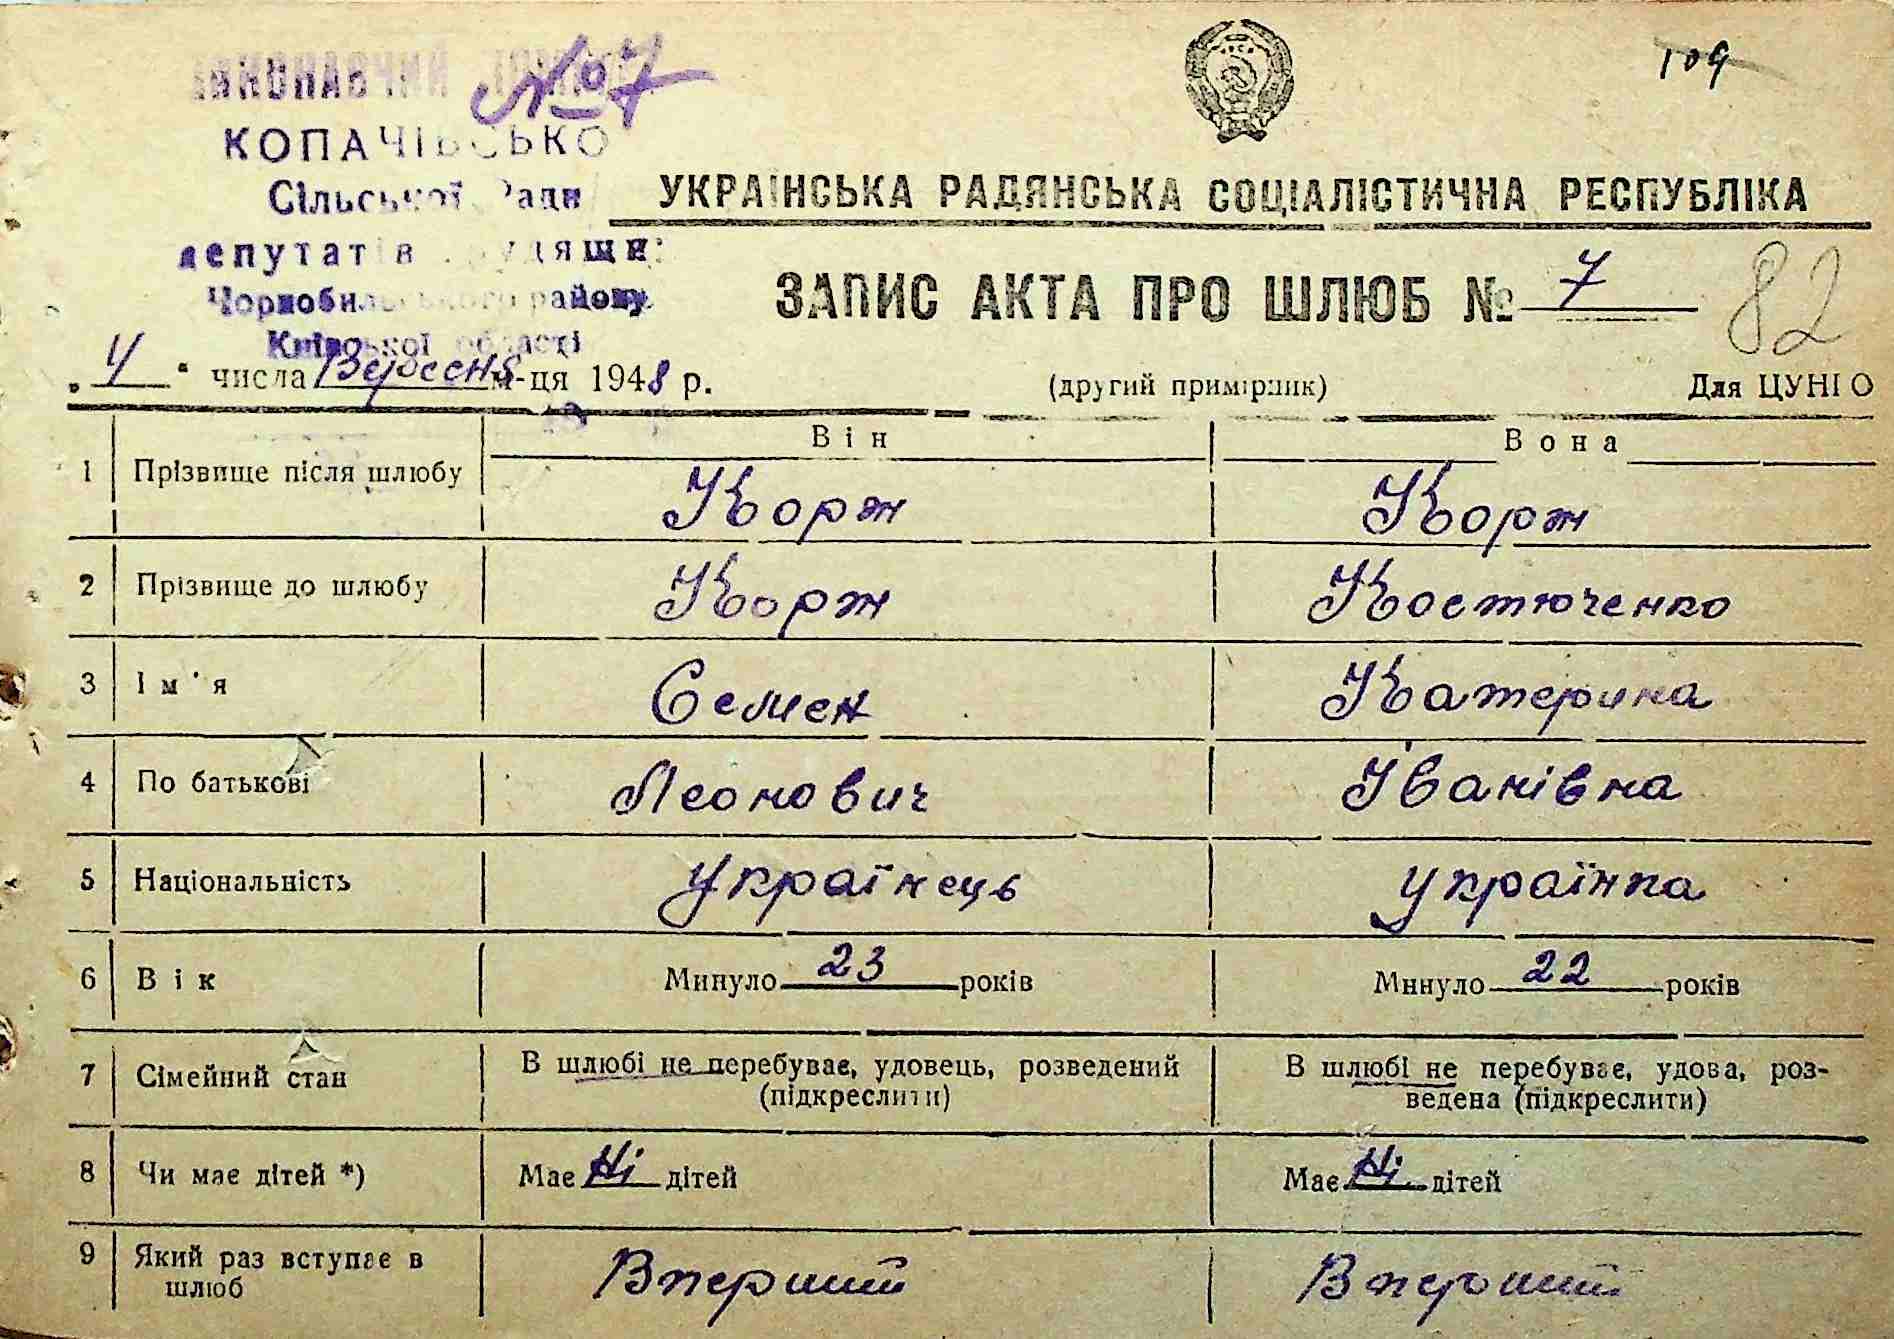 № 7
109
ВИКОНАВЧИЙ
КОПАЧІВСЬКО
Сільської Ради
депутатів трудящих
Чорнобильського району
Київської області
УКРАЇНСЬКА РАДЯНСЬКА СОЦІАЛІСТИЧНА РЕСПУБЛІКА
ЗАПИС АКТА ПРО ШЛЮБ № 7
82
„4“ числа Вересня м-ця 1948 р.
(другий примірник)
Для ЦУНГО
Він
Вона
1 Прізвище після шлюбу Корж Корж
2 Прізвище до шлюбу Корж Костюченко
3 Ім'я Семен Катерина
4 По батькові Леонович Іванівна
5 Національність Українець українка
6 Вік Минуло 23 років Минуло 22 років
7 Сімейний стан В шлюбі не перебуває, удовець, розведений В шлюбі не перебуває, удова, роз-
(підкреслити) ведена (підкреслити)
8 Чи має дітей *) Має Ні дітей Має Ні дітей
9 Який раз вступає в Вперший Вперший
шлюб